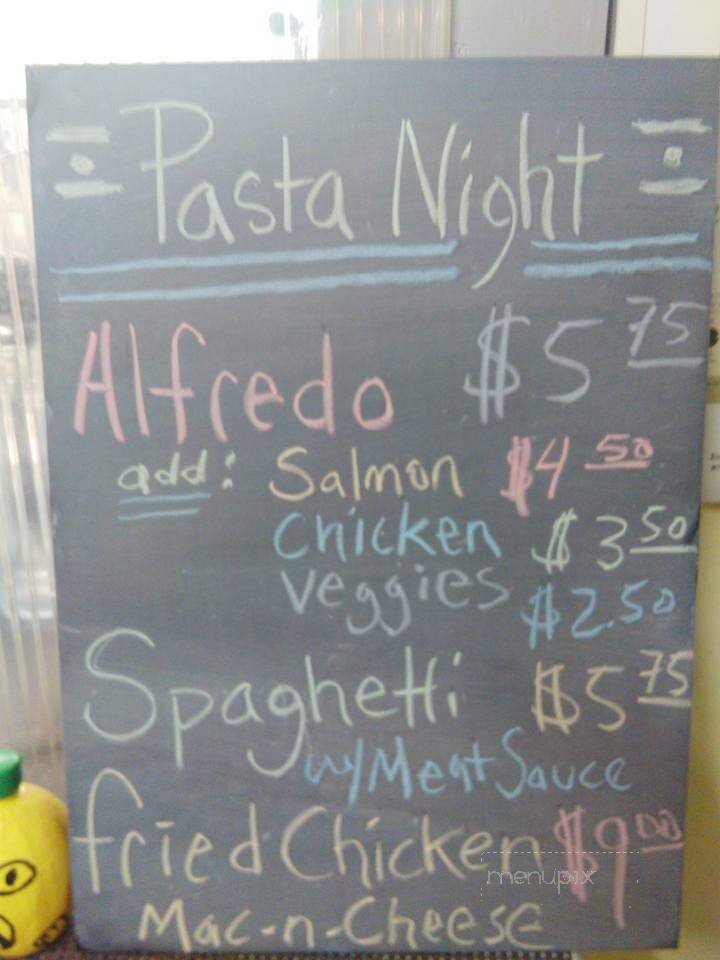 Pasta Night
Alfredo $5 75
add: Salmon $4 50
Chicken $3 50
veggies $2.50
Spaghetti $5 75
w/Meat Sauce
fried Chicken $9 00
menupix
Mac-n-Cheese